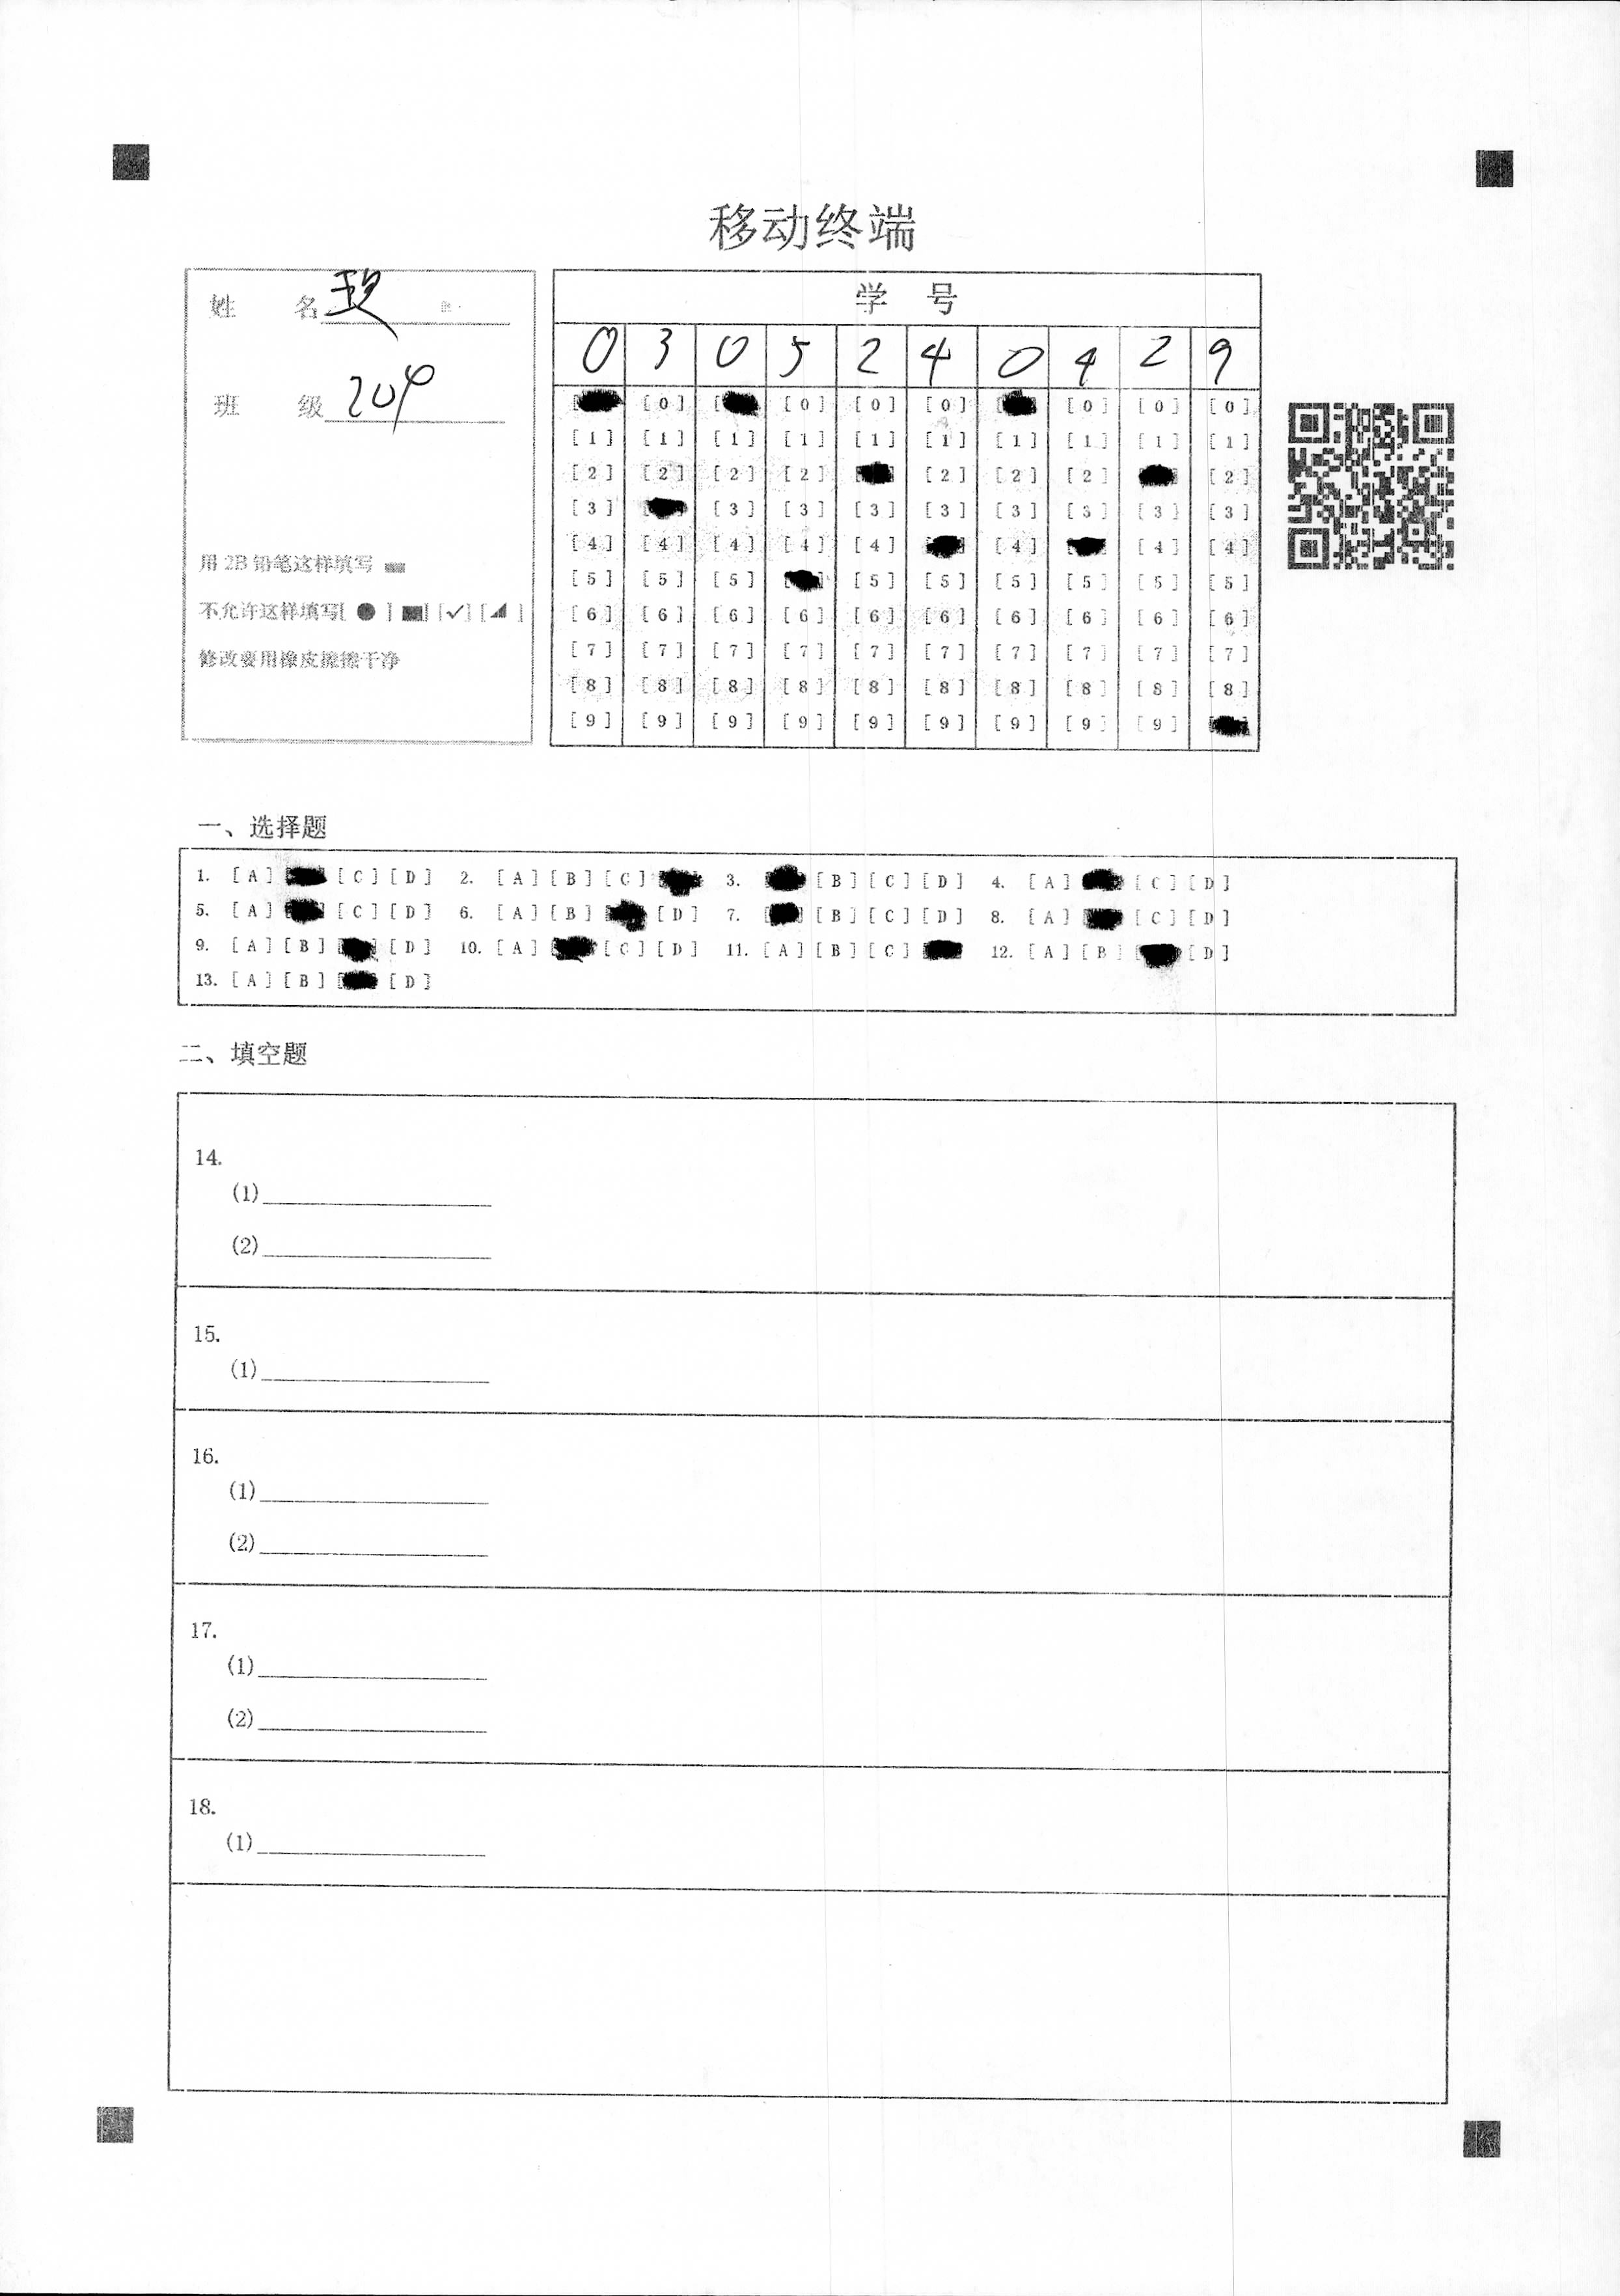 移动终端
姓 名
班 级 204
用 2B 铅笔这样填写
不允许这样填写[ ● ] [■] [✓] [◢ ]
修改要用橡皮擦擦干净
学 号
0 3 0 5 2 4 0 4 2 9
[0] [0] [0] [0] [0] [0] [0]
[1] [1] [1] [1] [1] [1] [1] [1] [1] [1]
[2] [2] [2] [2] [2] [2] [2] [2]
[3] [3] [3] [3] [3] [3] [3] [3] [3]
[4] [4] [4] [4] [4] [4] [4] [4]
[5] [5] [5] [5] [5] [5] [5] [5] [5]
[6] [6] [6] [6] [6] [6] [6] [6] [6] [6]
[7] [7] [7] [7] [7] [7] [7] [7] [7] [7]
[8] [8] [8] [8] [8] [8] [8] [8] [8] [8]
[9] [9] [9] [9] [9] [9] [9] [9] [9]
一、选择题
1. [A] [C] [D] 2. [A] [B] [C] 3. [B] [C] [D] 4. [A] [C] [D]
5. [A] [C] [D] 6. [A] [B] [D] 7. [B] [C] [D] 8. [A] [C] [D]
9. [A] [B] [D] 10. [A] [C] [D] 11. [A] [B] [C] 12. [A] [B] [D]
13. [A] [B] [D]
二、填空题
14.
(1)
(2)
15.
(1)
16.
(1)
(2)
17.
(1)
(2)
18.
(1)